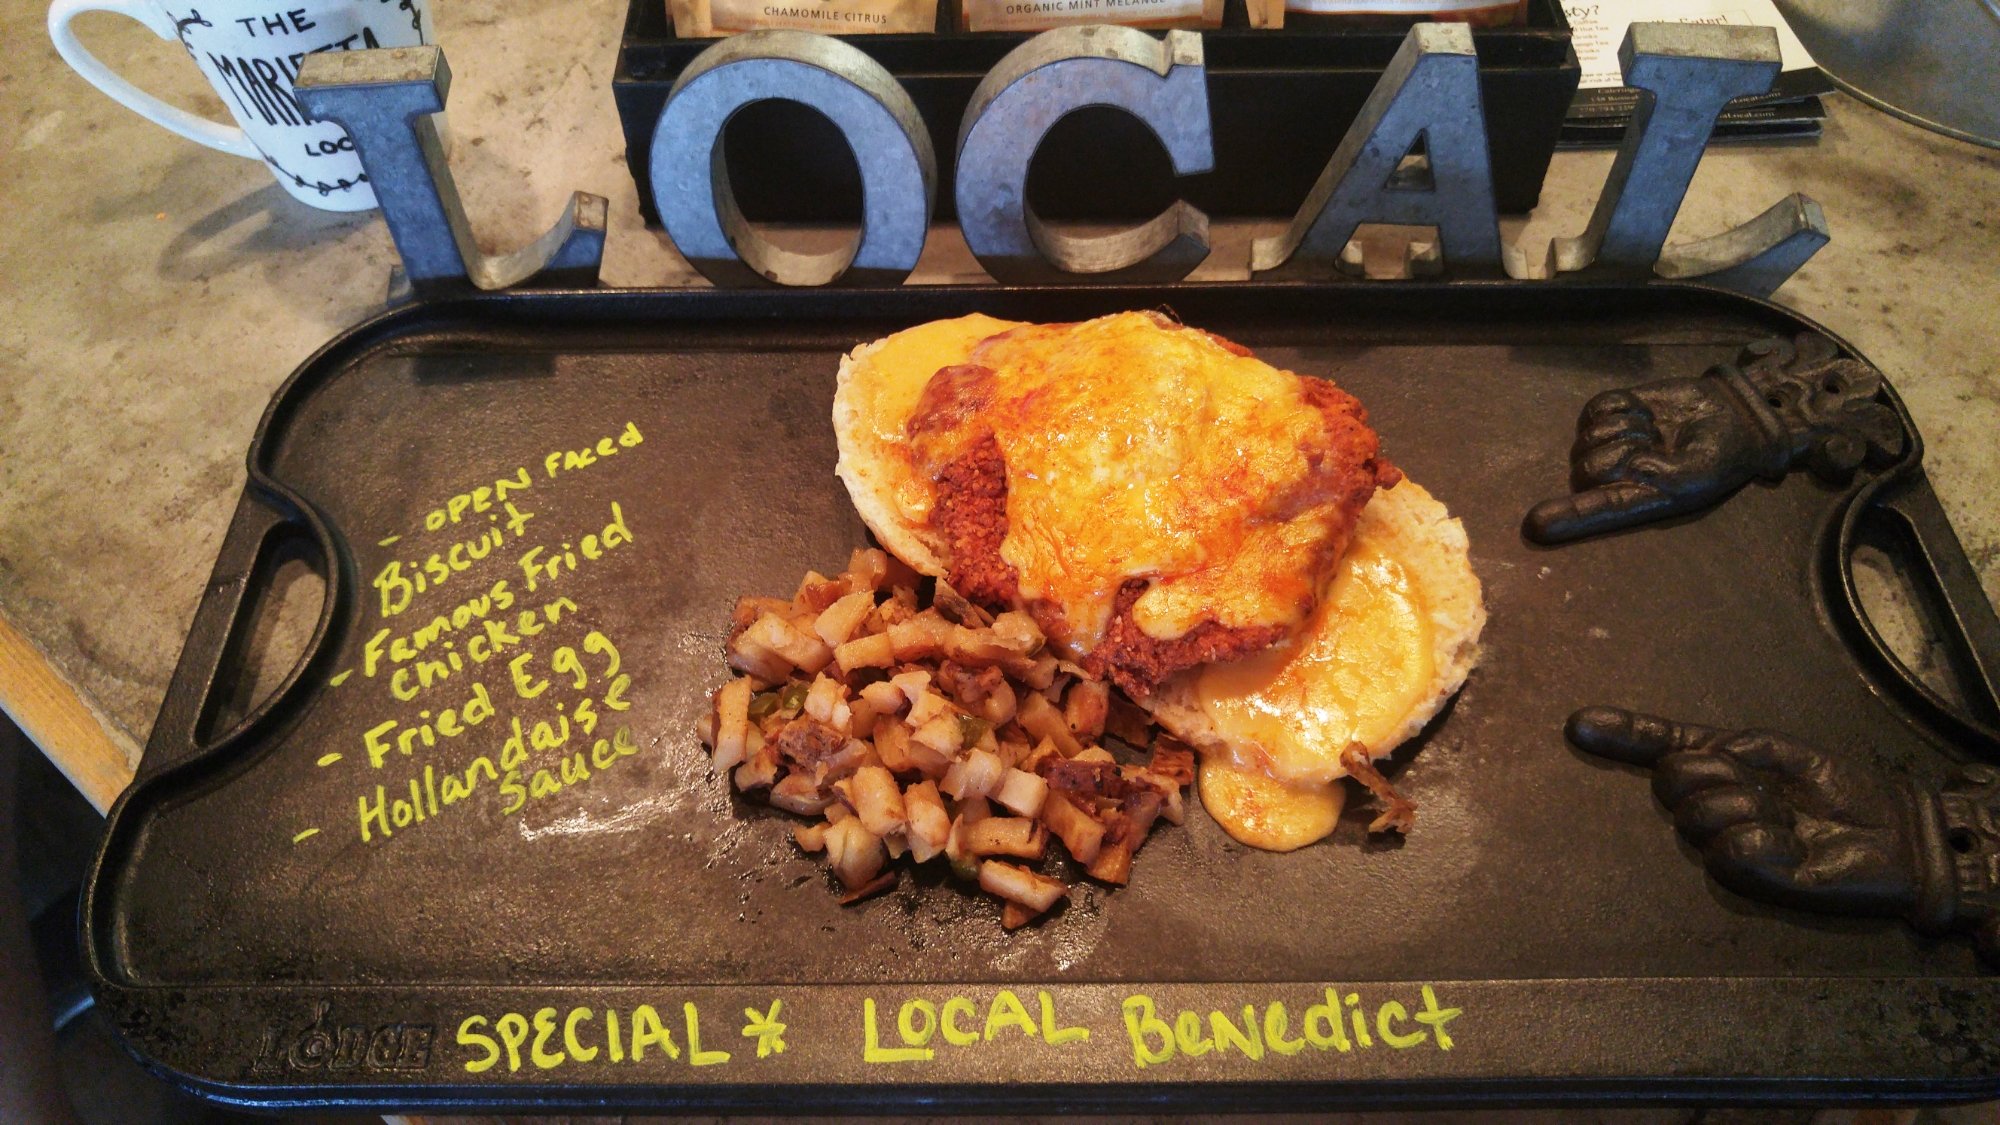 CHAMOMILE CITRUS
ORGANIC MINT MELANGE
THE
MARIETTA
LOC
LOCAL
- OPEN FACED
Biscuit
- Famous Fried
chicken
- Fried Egg
- Hollandaise
Sauce
LODGE
SPECIAL * LOCAL Benedict